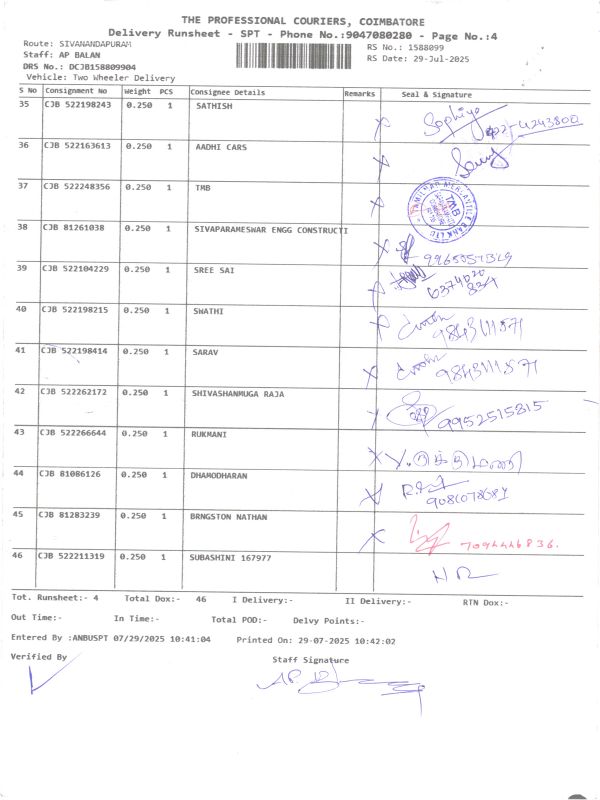 THE PROFESSIONAL COURIERS, COIMBATORE
Delivery Runsheet - SPT - Phone No.:9047080280 - Page No.:4
Route: SIVANANDAPURAM
RS No.: 1588099
Staff: AP BALAN
RS Date: 29-Jul-2025
DRS No.: DCJB158809904
Vehicle: Two Wheeler Delivery
S No Consignment No Weight PCS Consignee Details Remarks Seal & Signature
35 CJB 522198243 0.250 1 SATHISH
36 CJB 522163613 0.250 1 AADHI CARS
37 CJB 522248356 0.250 1 TMB TAMILNAD MERCANTILE BANK LTD TMB
38 CJB 81261038 0.250 1 SIVAPARAMESWAR ENGG CONSTRUCTI
39 CJB 522104229 0.250 1 SREE SAI 6374020
834
40 CJB 522198215 0.250 1 SWATHI 9843111571
41 CJB 522198414 0.250 1 SARAV 9843111571
42 CJB 522262172 0.250 1 SHIVASHANMUGA RAJA 9952515815
43 CJB 522266644 0.250 1 RUKMANI
44 CJB 81086126 0.250 1 DHAMODHARAN
45 CJB 81283239 0.250 1 BRNGSTON NATHAN 7094446836.
46 CJB 522211319 0.250 1 SUBASHINI 167977
Tot. Runsheet:- 4 Total Dox:- 46 I Delivery:- II Delivery:- RTN Dox:-
Out Time:- In Time:- Total POD:- Delvy Points:-
Entered By :ANBUSPT 07/29/2025 10:41:04 Printed On: 29-07-2025 10:42:02
Verified By Staff Signature